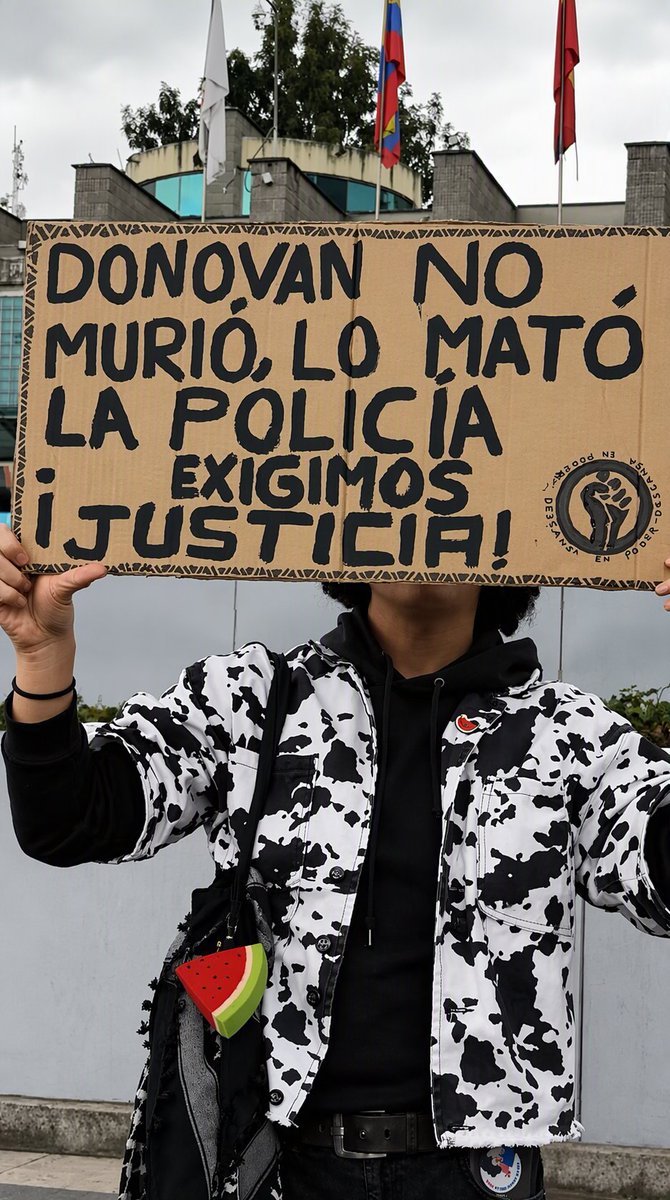 DONOVAN NO
MURIÓ, LO MATÓ
LA POLICÍA
EXIGIMOS
¡JUSTICIA!
DESCANSA EN PODER
DESCANSA EN PODER